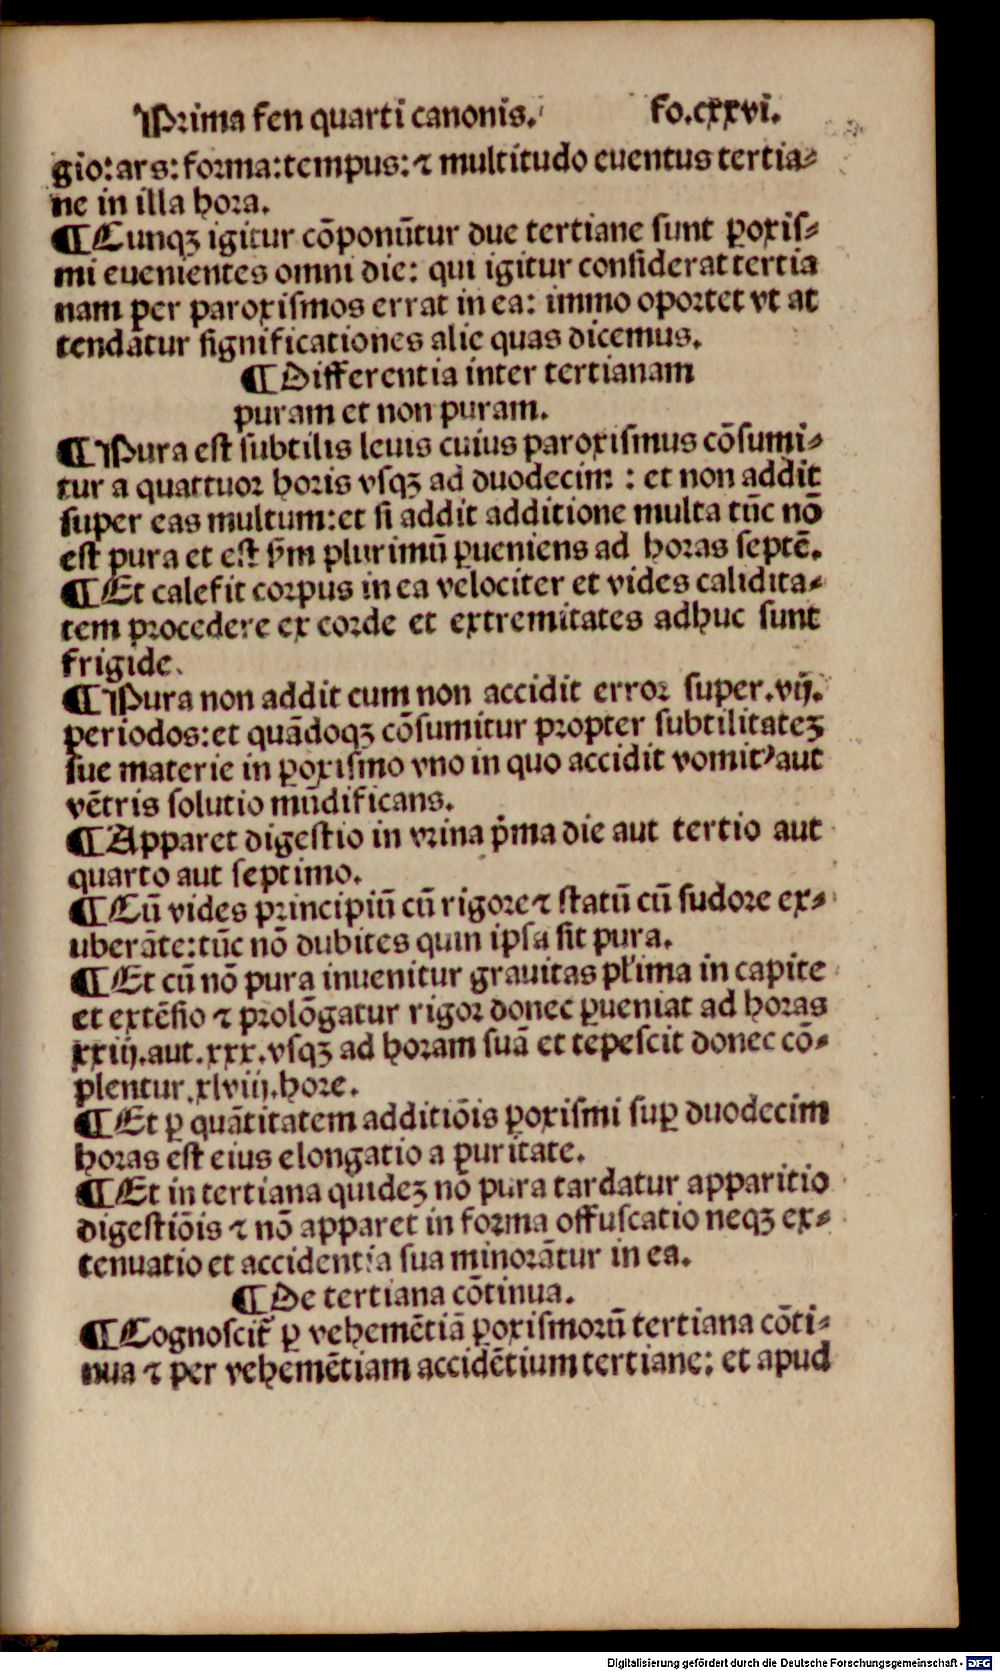 Prima fen quarti canonis. fo.cxxvi.
gio:ars:forma:tempus:⁊ multitudo euentus tertia⸗
ne in illa hora.
¶Cunqꝫ igitur cōponūtur due tertiane sunt ꝑoxis⸗
mi euenientes omni die: qui igitur considerat tertia
nam per paroxismos errat in ea: immo oportet vt at
tendātur significationes alie quas dicemus.
¶Differentia inter tertianam
puram et non puram.
¶Pura est subtilis leuis cuius paroxismus cōsumi⸗
tur a quattuor horis vsqꝫ ad duodecim : et non addit
super eas multum:et si addit additione multa tūc nō
est pura et est ẜm plurimū ꝑueniens ad horas septē.
¶Et calefit corpus in ea velociter et vides calidita⸗
tem procedere ex corde et extremitates adhuc sunt
frigide.
¶Pura non addit cum non accidit error super.vij.
periodos:et quādoqꝫ cōsumitur propter subtilitateꝫ
sue materie in ꝑoxismo vno in quo accidit vomitꝰaut
vētris solutio mūdificans.
¶Apparet digestio in vrina p̓ma die aut tertio aut
quarto aut septimo.
¶Cū vides principiū cū rigore⁊ statū cū sudore ex⸗
uberāte:tūc nō dubites quin ipsa sit pura.
¶Et cū nō pura inuenitur grauitas pl̓ima in capite
et extēsio ⁊ prolōgatur rigor donec ꝑueniat ad horas
xxiij.aut.xxx.vsqꝫ ad horam suā et tepescit donec cō⸗
plentur.xlviij.hore.
¶Et ꝑ quātitatem additiōis ꝑoxismi suꝑ duodecim
horas est eius elongatio a puritate.
¶Et in tertiana quideꝫ nō pura tardatur apparitio
digestiōis ⁊ nō apparet in forma offuscatio neqꝫ ex⸗
tenuatio et accidentia sua minorātur in ea.
¶De tertiana cōtinua.
¶Cognoscit᷑ ꝑ vehemētiā ꝑoxismorū tertiana cōti⸗
nua ⁊ per vehemētiam accidētium tertiane: et apud
Digitalisierung gefördert durch die Deutsche Forschungsgemeinschaft - DFG